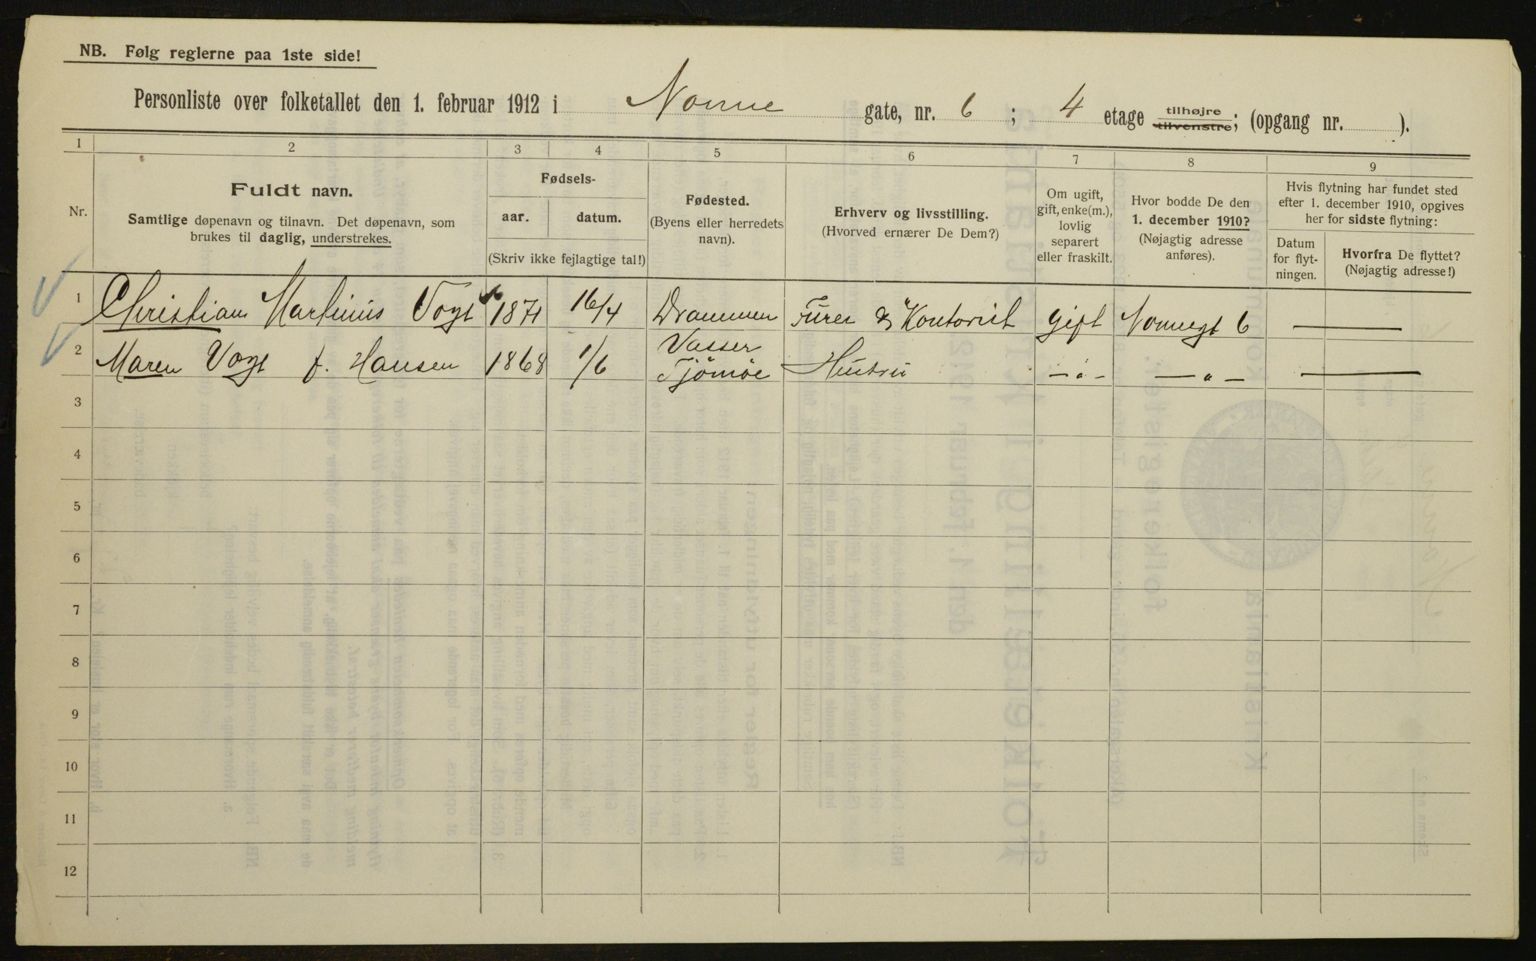 NB. Følg reglerne paa 1ste side!
Personliste over folketallet den 1. februar 1912 i Nonne gate, nr. 6 ; 4 etage tilhøjre tilvenstre; (opgang nr. ).
1 2 3 4 5 6 7 8 9
Nr.
Fuldt navn.
Samtlige døpenavn og tilnavn. Det døpenavn, som
brukes til daglig, understrekes.
Fødsels-
aar. datum.
(Skriv ikke fejlagtige tal!)
Fødested.
(Byens eller herredets
navn).
Erhverv og livsstilling.
(Hvorved ernærer De Dem?)
Om ugift,
gift, enke(m.),
lovlig
separert
eller fraskilt.
Hvor bodde De den
1. december 1910?
(Nøjagtig adresse
anføres).
Hvis flytning har fundet sted
efter 1. december 1910, opgives
her for sidste flytning:
Datum
for flyt-
ningen.
Hvorfra De flyttet?
(Nøjagtig adresse!)
1 Christian Martinius Vogt 1871 16/4 Drammen Furer & Kontorist gift Nonnegt 6 —
2 Maren Vogt f. Hansen 1868 1/6 Vasser Tjömöe Hustru — " — — " — —
3
4
5
6
7
8
9
10
11
12